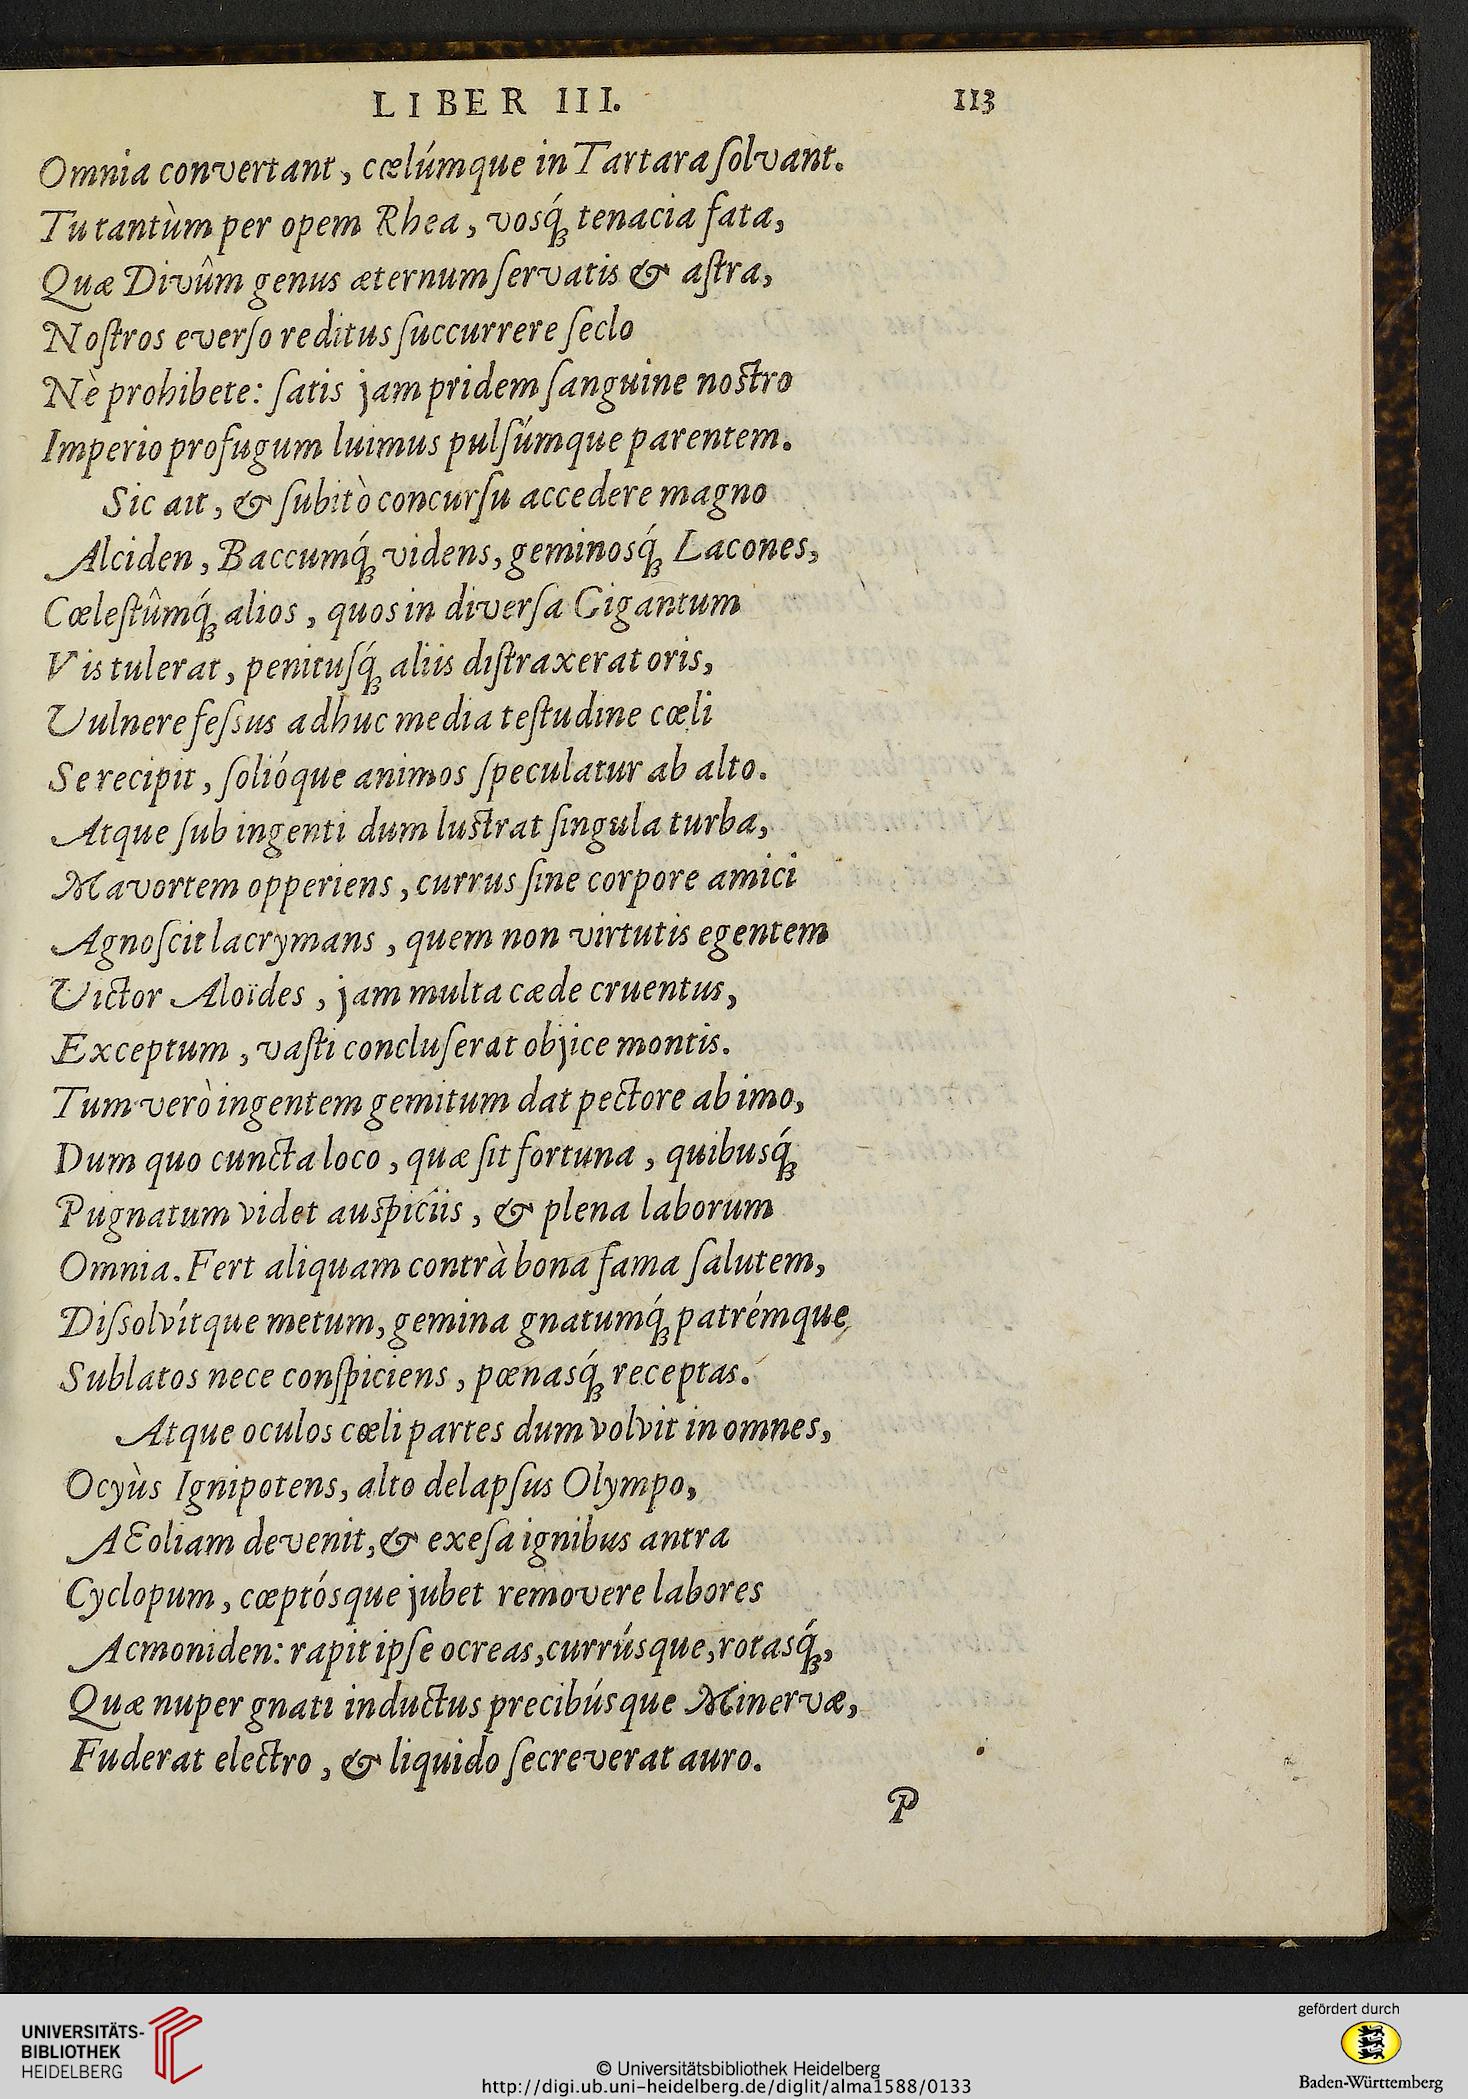 LIBER III. 113
Omnia convertant, cœlúmque in Tartara ſolvant.
Tu tantùm per opem Rhea, vosq́; tenacia fata,
Quæ Divûm genus æternum ſervatis & aſtra,
Noſtros everſo reditus ſuccurrere ſeclo
Nè prohibete: ſatis jam pridem ſanguine nostro
Imperio profugum luimus pulſúmque parentem.
Sic ait, & ſubitò concurſu accedere magno
Alciden, Baccumq́; videns, geminosq́; Lacones,
Cœleſtûmq́; alios, quos in diverſa Gigantum
Vis tulerat, penituſq́; aliis diſtraxerat oris,
Vulnere feſsus adhuc media teſtudine cœli
Se recipit, ſolióque animos ſpeculatur ab alto.
Atque ſub ingenti dum lustrat ſingula turba,
Mavortem opperiens, currus ſine corpore amici
Agnoſcit lacrymans, quem non virtutis egentem
Victor Aloïdes, jam multa cæde cruentus,
Exceptum, vaſti concluſerat objice montis.
Tum verò ingentem gemitum dat pectore ab imo,
Dum quo cuncta loco, quæ ſit fortuna, quibusq́;
Pugnatum videt auspiciis, & plena laborum
Omnia. Fert aliquam contrà bona fama ſalutem,
Diſsolvítque metum, gemina gnatumq́; patrémque
Sublatos nece conſpiciens, pœnasq́; receptas.
Atque oculos cœli partes dum volvit in omnes,
Ocyùs Ignipotens, alto delapſus Olympo,
AEoliam devenit, & exeſa ignibus antra
Cyclopum, cœptósque jubet removere labores
Acmoniden: rapit ipſe ocreas, currúsque, rotasq́;,
Quæ nuper gnati inductus precibúsque Minervæ,
Fuderat electro, & liquido ſecreverat auro.
P
UNIVERSITÄTS-
BIBLIOTHEK
HEIDELBERG
© Universitätsbibliothek Heidelberg
http://digi.ub.uni-heidelberg.de/diglit/alma1588/0133
gefördert durch
Baden-Württemberg